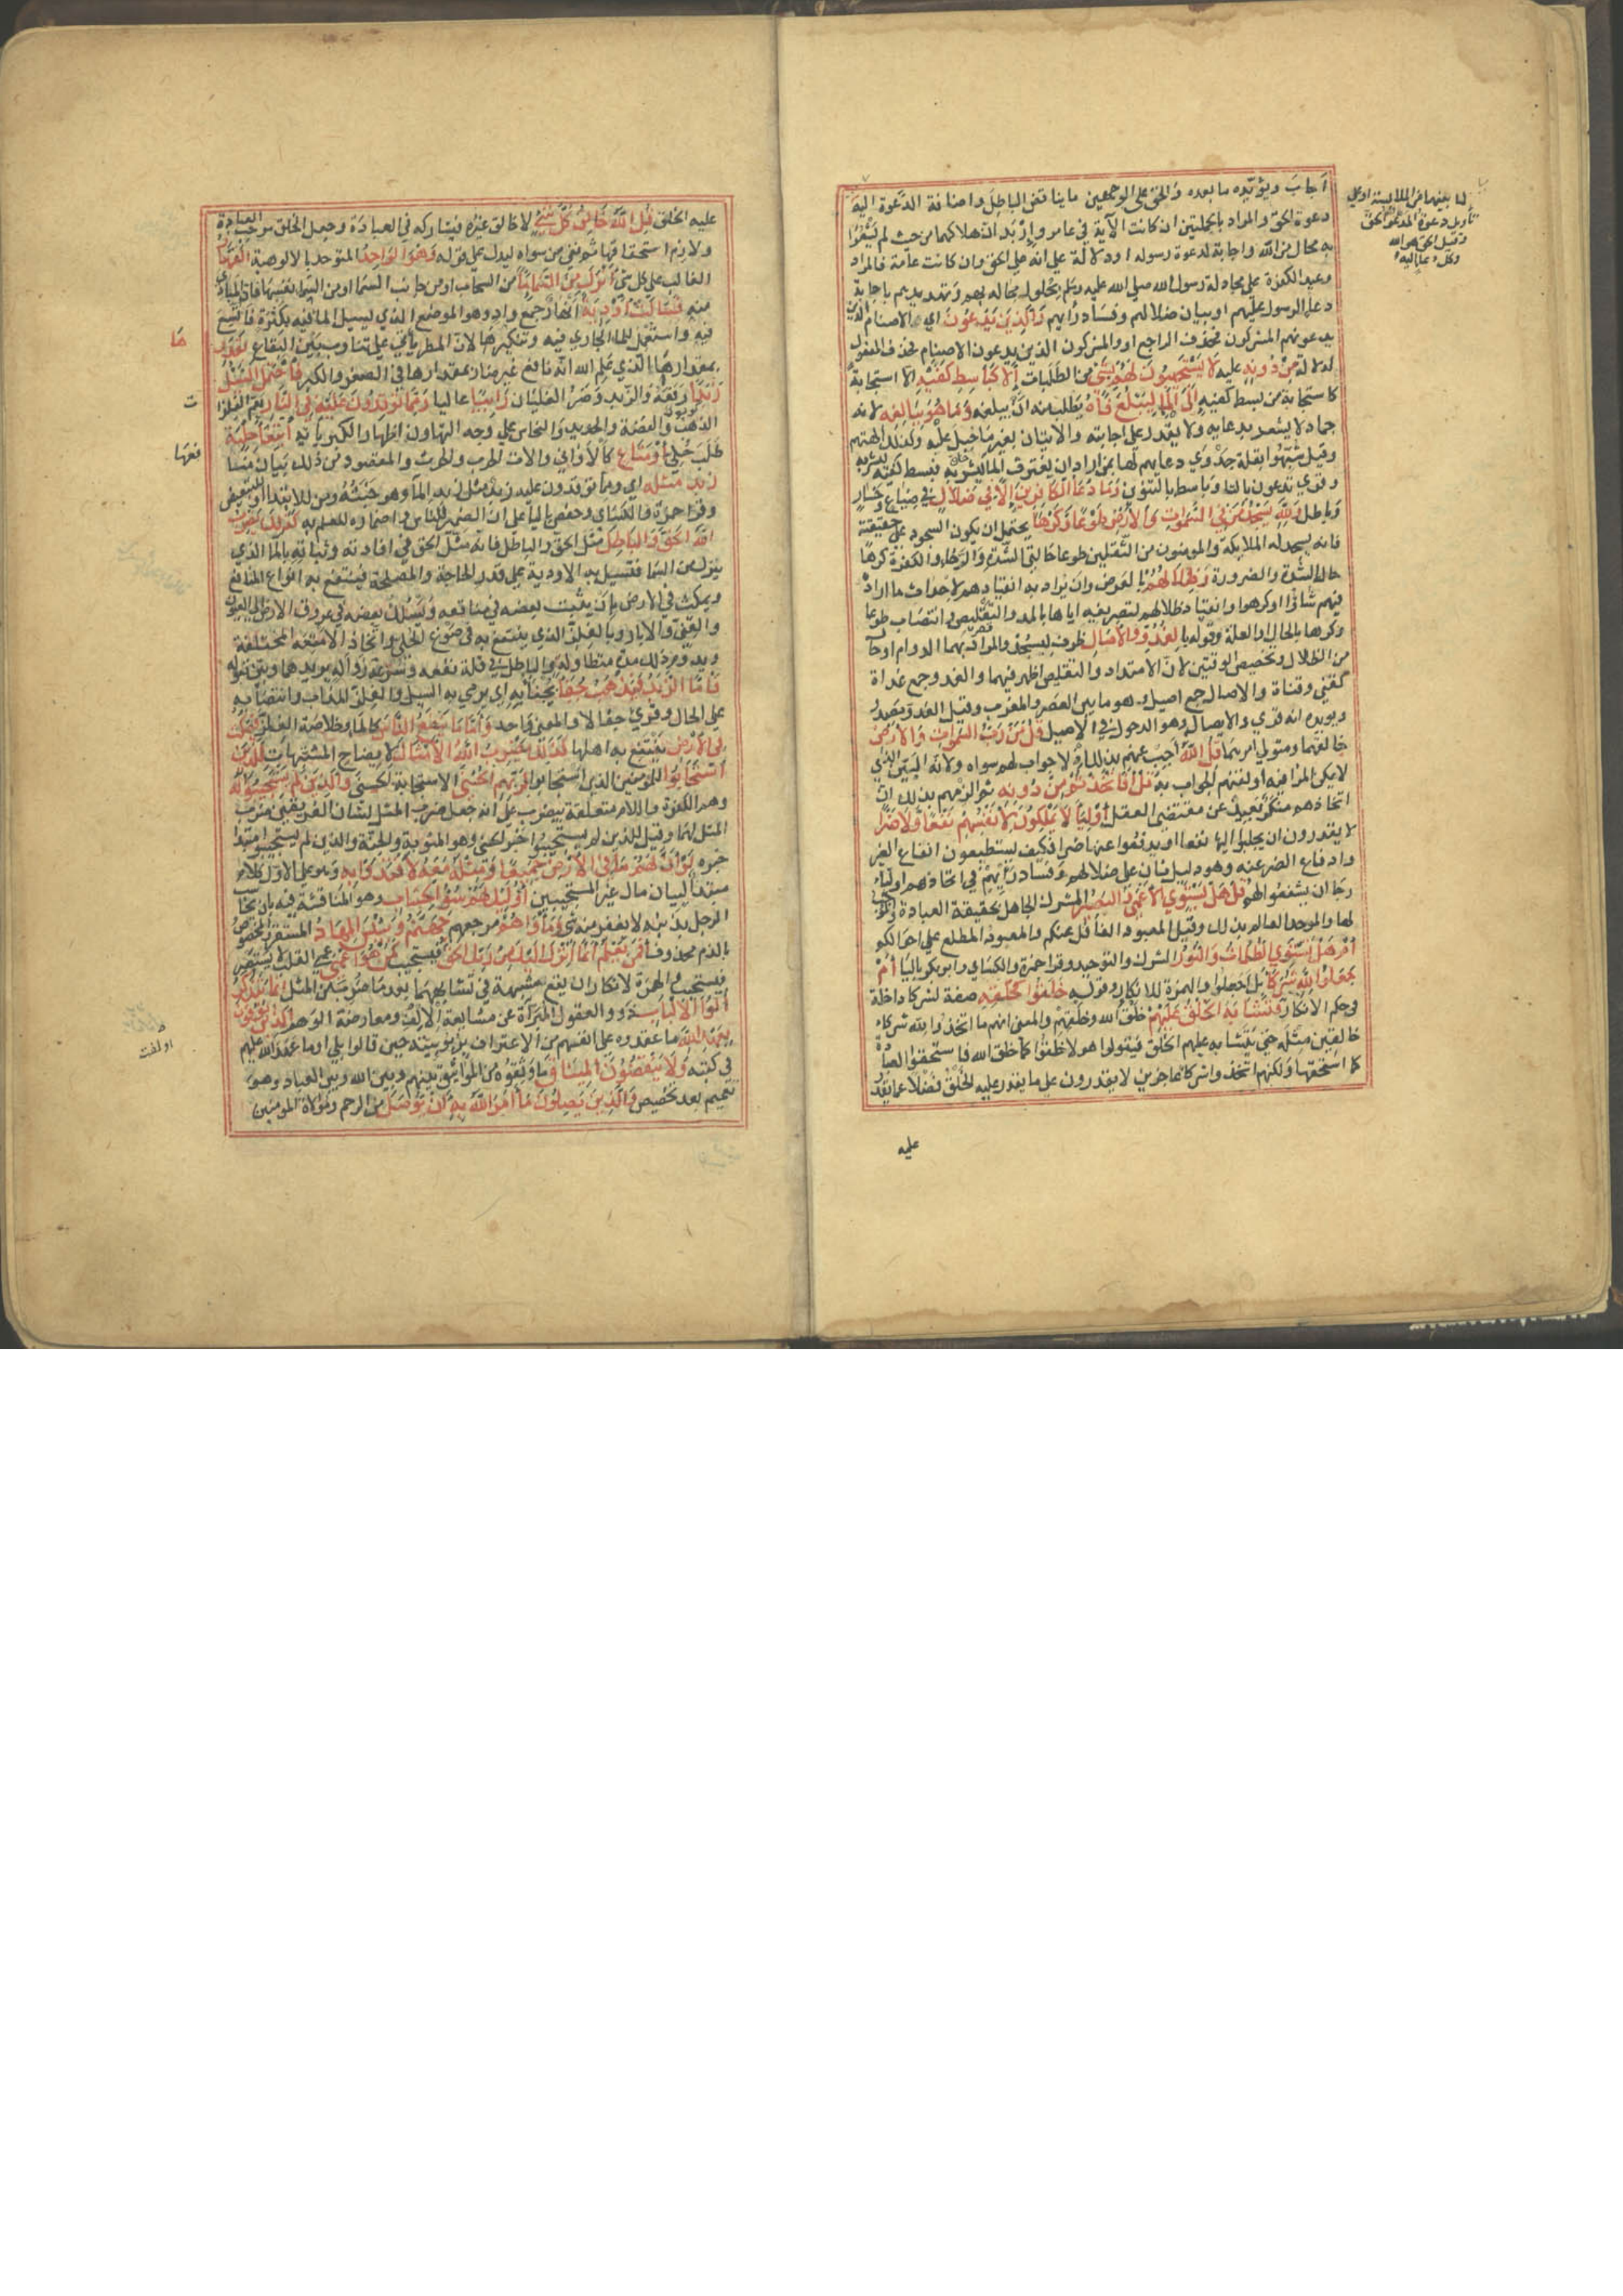 أجاب ويؤيده ما بعده والحق على الوجهين ما يناقض الباطل واضافة الدعوة اليه
دعوة الحق والمراد بالجملتين ان كانت الآية في عامر واربد ان هلاكهما من حيث لم يشعرا
به محال من الله واجابة لدعوة رسوله او دلالة على انه على الحق وان كانت عامة فالمراد
وعيد الكفرة على مجادلة رسول الله صلى الله عليه وسلم بحلول محاله بهم وتهديدهم باجابة
دعاء الرسول عليهم او بيان ضلالهم وفساد رأيهم والذين يدعون اي الاصنام الذين
يدعونهم المشركون فحذف الراجع او والمشركون الذين يدعون الاصنام فحذف المفعول
لدلالة من دونه عليه لا يستجيبون لهم بشي من الطلبات الا كباسط كفيه الا استجابة
كاستجابة من بسط كفيه الى الماء ليبلغ فاه يطلب منه ان يبلغه وما هو ببالغه لانه
جماد لا يشعر بدعايه ولا يقدر على اجابته والاتيان بغير ما جبل عليه وكذلك الهتهم
وقيل شبهوا بقلة جدوى دعايهم لها بمن اراد ان يغترف الما ليشربه فبسط كفيه ليشربه
وقرى تدعون بالتا وباسط بالتنوين وما دعا الكافرين الا في ضلال في ضياع وخسار
وباطل ولله يسجد من في السموات والارض طوعا وكرها يحتمل ان يكون السجود على حقيقته
فانه يسجد له الملايكة والمومنون من الثقلين طوعا حالتي الشدة والرخا والكفرة كرها
حال الشدة والضرورة وظلالهم بالعرض وان يراد به انقيادهم لاحداث ما اراد
فيهم شاؤا او كرهوا وانقياد ظلالهم لتصريفه اياها بالمد والتقليص وانتصاب طوعا
وكرها بالحال او العلة وقوله بالغدو والاصال ظرف ليسجد والمراد بهما الدوام او حال
من الظلال وتخصيص الوقتين لان الامتداد والتقليص اظهر فيهما والغدو جمع غداة
كقني وقناة والاصال جمع اصيل وهو ما بين العصر والمغرب وقيل الغدو مصدر
ويويده انه قرى والايصال وهو الدخول في الاصيل قل من رب السموات والارض
خالقهما ومتولي امرهما قل الله اجب عنهم بذلك اذ لا جواب لهم سواه ولانه البين الذي
لا يمكن المرا فيه او لقنهم الجواب به قل افاتخذتم من دونه ثم الزمهم بذلك لان
اتخاذهم منكر بعيد عن مقتضى العقل اوليا لا يملكون لانفسهم نفعا ولا ضرا
لا يقدرون ان يجلبوا اليها نفعا او يدفعوا عنها ضرا فكيف يستطيعون انفاع الغير
ودفاع الضر عنه وهو دليل ثان على ضلالهم وفساد رأيهم في اتخاذهم اولياء
رجا ان يشفعوا لهم قل هل يستوي الاعمى والبصير المشرك الجاهل بحقيقة العبادة والموجب
لها والموحد العالم بذلك وقيل المعبود الغافل عنكم والمعبود المطلع على احوالكم
ام هل تستوي الظلمات والنور الشرك والتوحيد وقرا حمزة والكساي وابوبكر باليا ام
جعلوا لله شركا بل اجعلوا والهمزة للانكار وقوله خلقوا كخلقه صفة لشركا داخلة
في حكم الانكار فتشابه الخلق عليهم خلق الله وخلقهم والمعنى انهم ما اتخذوا لله شركاء
خالقين مثله حتى يتشابه عليهم الخلق فيقولوا هولا خلقوا كما خلق الله فاستحقوا العبادة
كما استحقها ولكنهم اتخذوا شركا عاجزين لا يقدرون على ما يقدر عليه الخلق فضلا عما يقدر
عليه
لما بينهما من الملابسة او على
تأويل دعوة المدعو الحق
وقيل الحق هو الله
وكل دعا اليه
عليه الخالق قل الله خالق كل شي لا خالق غيره فيشاركه في العبادة وجعل الخلق موجب العبادة
ولازم استحقاقها ثم نفى عن سواه ليدل على قوله وهو الواحد المتوحد بالالوهية القهار
الغالب على كل شي انزل من السما ما من السحاب او من جانب السما او من السما نفسها فان المبادي
منه فسالت اودية انهار جمع واد وهو الموضع الذي يسيل الما فيه بكثرة فاتسع
فيه واستعمل للما الجاري فيه وتنكيرها لان المطر يأتي على تناوب بين البقاع بقدرها
بمقدارها الذي علم الله انه نافع غير ضار او بمقدارها في الصغر والكبر فاحتمل السيل
زبدا رفعه والزبد وضر الغليان رابيا عاليا ومما توقدون عليه في النار يعم الفلزات
الذهب والفضة والحديد والنحاس على وجه التهاون اظهارا لكبريائه ابتغا حلية
طلب حلي او متاع كالاواني والات الحرب والحرث والمقصود من ذلك بيان منافعها
زبد مثله اي ومما توقدون عليه زبد مثل زبد الماء وهو خبثه ومن للابتدا او للتبعيض
وقرا حمزة والكساي وحفص باليا على ان الضمير للناس واضماره للعلم به كذلك يضرب
الله الحق والباطل مثل الحق والباطل فانه مثل الحق في افادته وثباته بالما الذي
ينزل من السما فتسيل به الاودية على قدر الحاجة والمصلحة فينتفع به انواع المنافع
ويمكث في الارض بان يثبت بعضه في منافعه ويسلك بعضه في عروق الارض الى العيون
والقنى والابار وبالفلز الذي ينتفع به في صوغ الحلي واتخاذ الامتعة المختلفة
ويدوم ذلك مدة متطاولة والباطل في قلة نفعه وسرعة زواله بزبدهما وبين قوله
فاما الزبد فيذهب جفا يجفأ به اي يرمي به السيل والفلز المذاب وانتصابه
على الحال وقرى جفالا والمعنى واحد واما ما ينفع الناس كالما وخلاصة الفلز فيمكث
في الارض ينتفع به اهلها كذلك يضرب الله الامثال لايضاح المشتبهات للذين
استجابوا للمومنين الذين استجابوا لربهم الحسنى الاستجابة الحسنى والذين لم يستجيبوا له
وهم الكفرة واللام متعلقة بيضرب على انه جعل ضرب المثل لشان الفريقين ضرب
المثل لهما وقيل للذين لم يستجيبوا خبر الحسنى وهو المثوبة والجنة والذين لم يستجيبوا مبتدا
خبره لو ان لهم ما في الارض جميعا ومثله معه لافتدوا به وهو على الاول كلام
مبتدا لبيان مال غير المستجيبين اوليك لهم سوء الحساب وهو المناقشة فيه بان يحاسب
الرجل بذنبه لا يغفر منه شي ومأواهم مرجعهم جهنم وبئس المهاد المستقر والمخصوص
بالذم محذوف افمن يعلم انما انزل اليك من ربك الحق فيستجيب كمن هو اعمى عمى القلب لا يستبصر
فيستجيب والهمزة لانكار ان يقع شبهة في تشابههما بعد ما ضرب من المثل انما يتذكر
اولوا الالباب ذوو العقول المبرأة عن مشايعة الالف ومعارضة الوهم الذين يوفون
بعهد الله ما عقدوه على انفسهم من الاعتراف بربوبيته حين قالوا بلى او ما عهد الله عليهم
في كتبه ولا ينقضون الميثاق ما وثقوه من المواثيق بينهم وبين الله وبين العباد وهو
تعميم بعد تخصيص والذين يصلون ما امر الله به ان يوصل من الرحم وموالاة المومنين
ها
ت
فعها